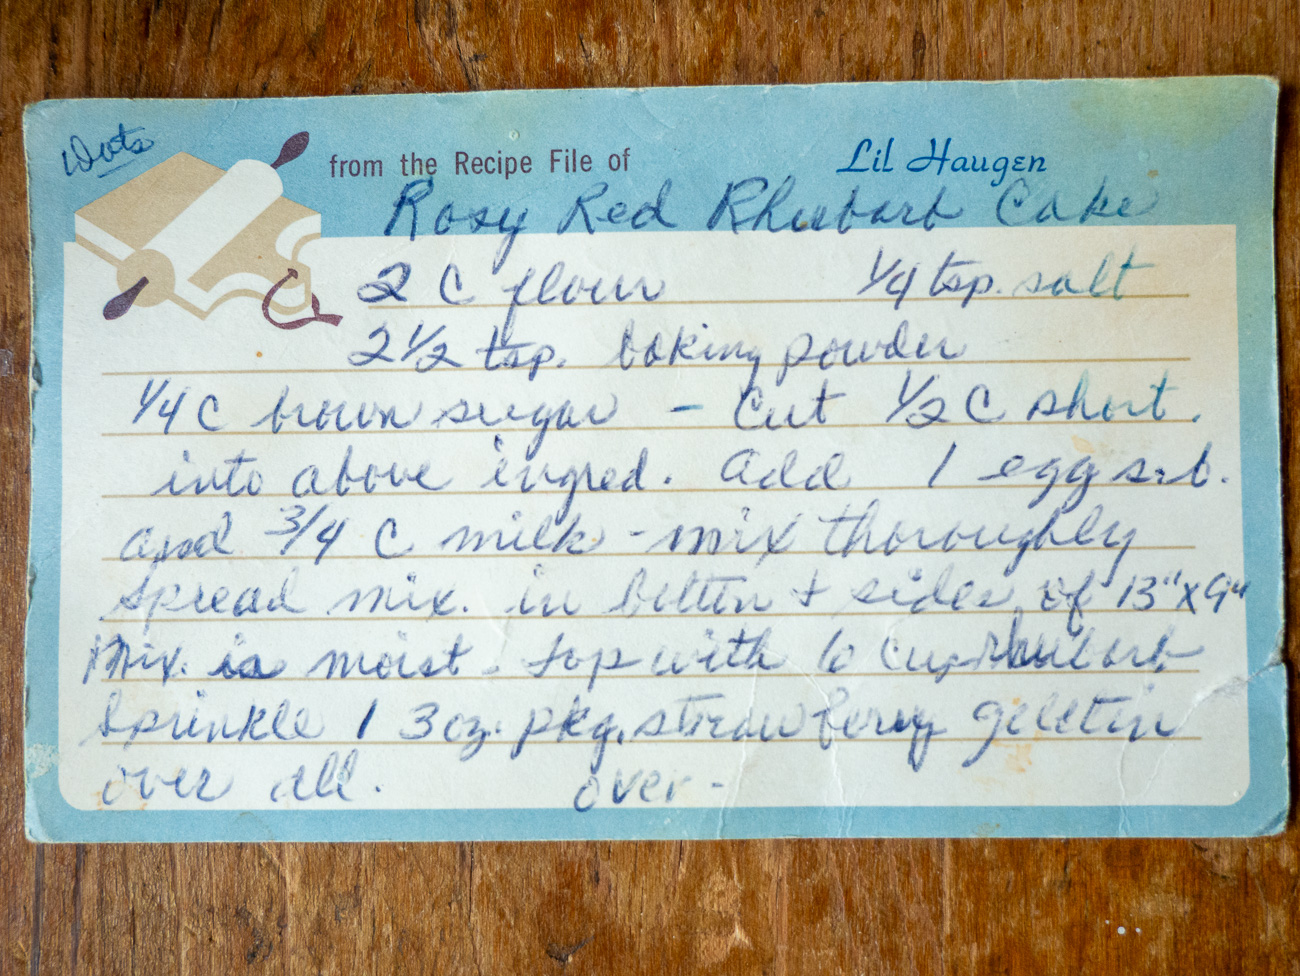 Dots
from the Recipe File of Lil Haugen
Rosy Red Rhubarb Cake
2 C flour 1/4 tsp. salt
2 1/2 tsp. baking powder
1/4 C brown sugar - Cut 1/2 C short.
into above ingred. Add 1 egg
and 3/4 C milk - mix thoroughly
Spread mix. in & sides of 13" x 9"
Mix. is moist - top with 6 Cup Rhubarb
Sprinkle 1 3 oz. pkg. strawberry geletin
over all. over -